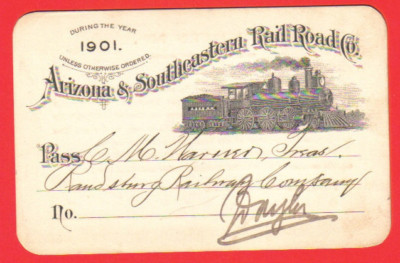 DURING THE YEAR
1901.
UNLESS OTHERWISE ORDERED.
Arizona & Southeastern Rail Road Co.
Pass C. M. Warner, Treas.
Randsburg Railway Company
No.